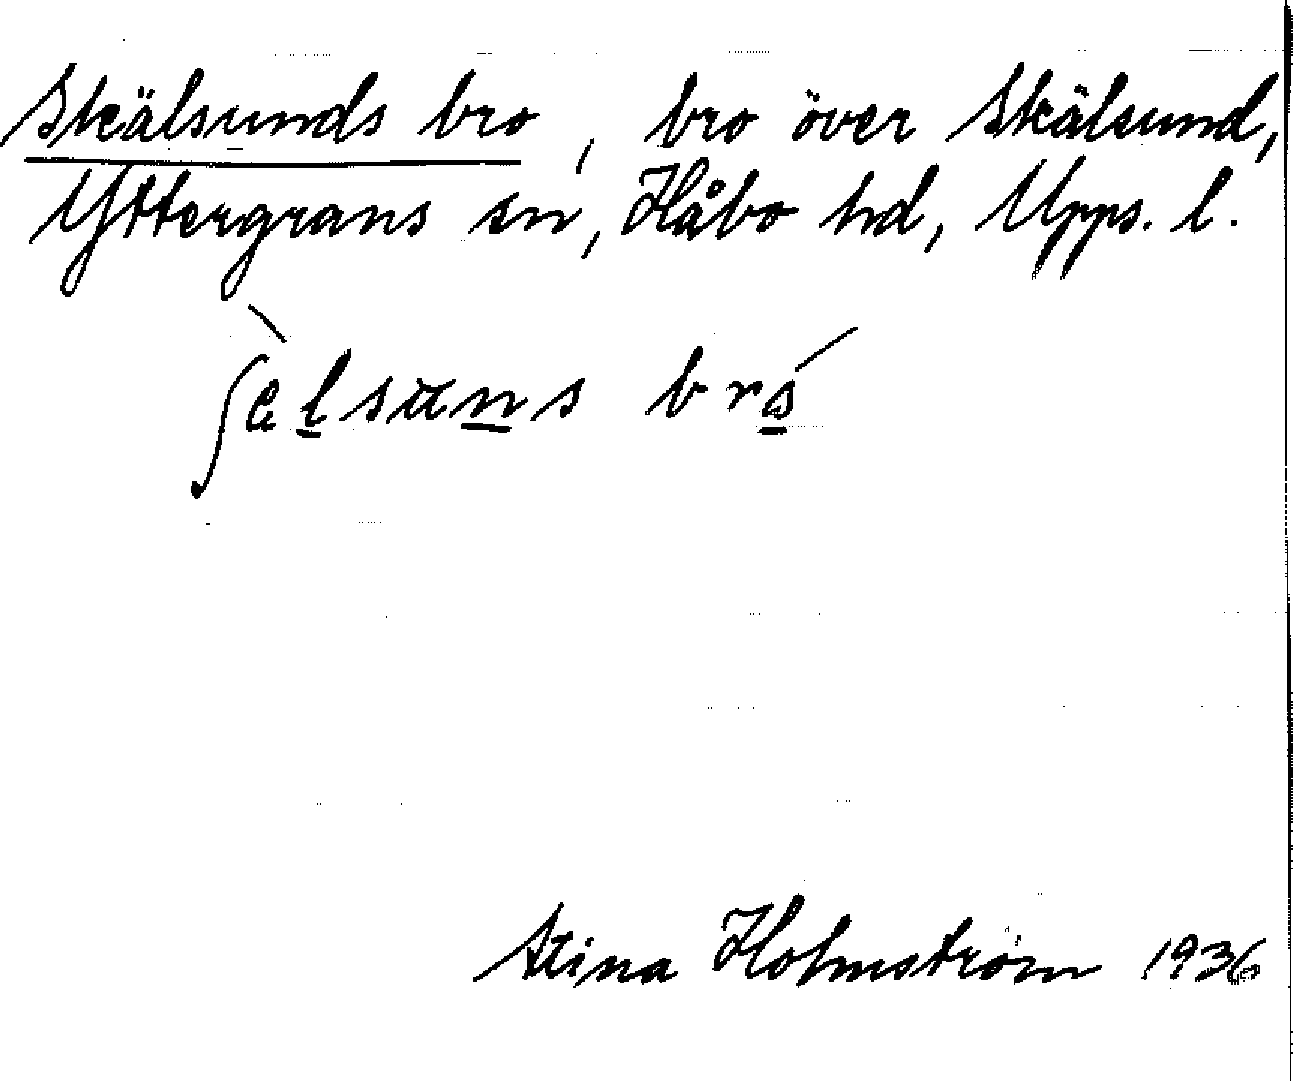 Skälsunds bro, bro över Skälsund,
Yttergrans sn, Håbo hd, Upps. l.
Stina Holmström 1936